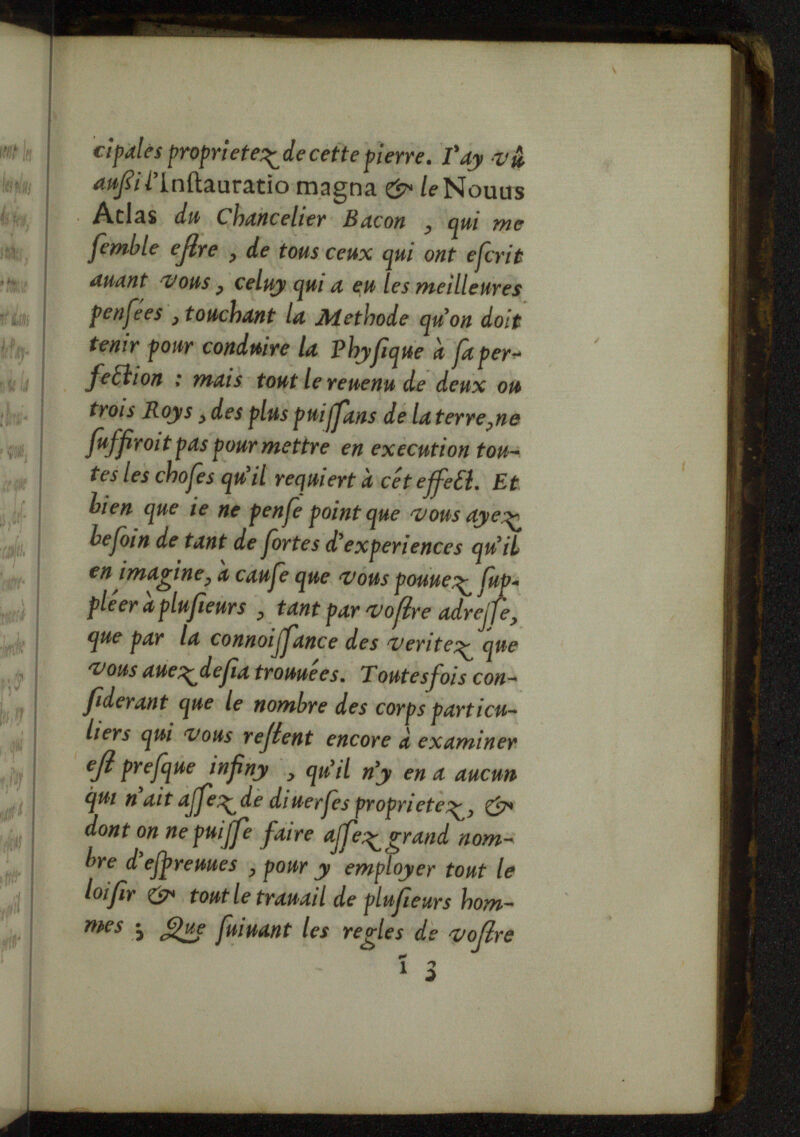 cipales proprietez de cette pierre. I'ay vû
außi l'Instauratio magna & le Nouus
Atlas du Chancelier Bacon , qui me
semble estre , de tous ceux qui ont escrit
auant vous , celuy qui a eu les meilleures
pensées , touchant la Methode qu'on doit
tenir pour conduire la Physique à sa per-
fection : mais tout le reuenu de deux ou
trois Roys , des plus puissans de la terre, ne
suffiroit pas pour mettre en execution tou-
tes les choses qu'il requiert à cét effect. Et
bien que ie ne pense point que vous ayez
besoin de tant de sortes d'experiences qu'il
en imagine, à cause que vous pouuez sup-
pléer à plusieurs , tant par vostre adresse,
que par la connoissance des veritez que
vous auez desia trouuées. Toutesfois con-
siderant que le nombre des corps particu-
liers qui vous restent encore à examiner
est presque infiny , qu'il n'y en a aucun
qui n'ait assez de diuerses proprietez, &
dont on ne puisse faire assez grand nom-
bre d'espreuues , pour y employer tout le
loisir & tout le trauail de plusieurs hom-
mes ; Que suiuant les regles de vostre
ĩ 3